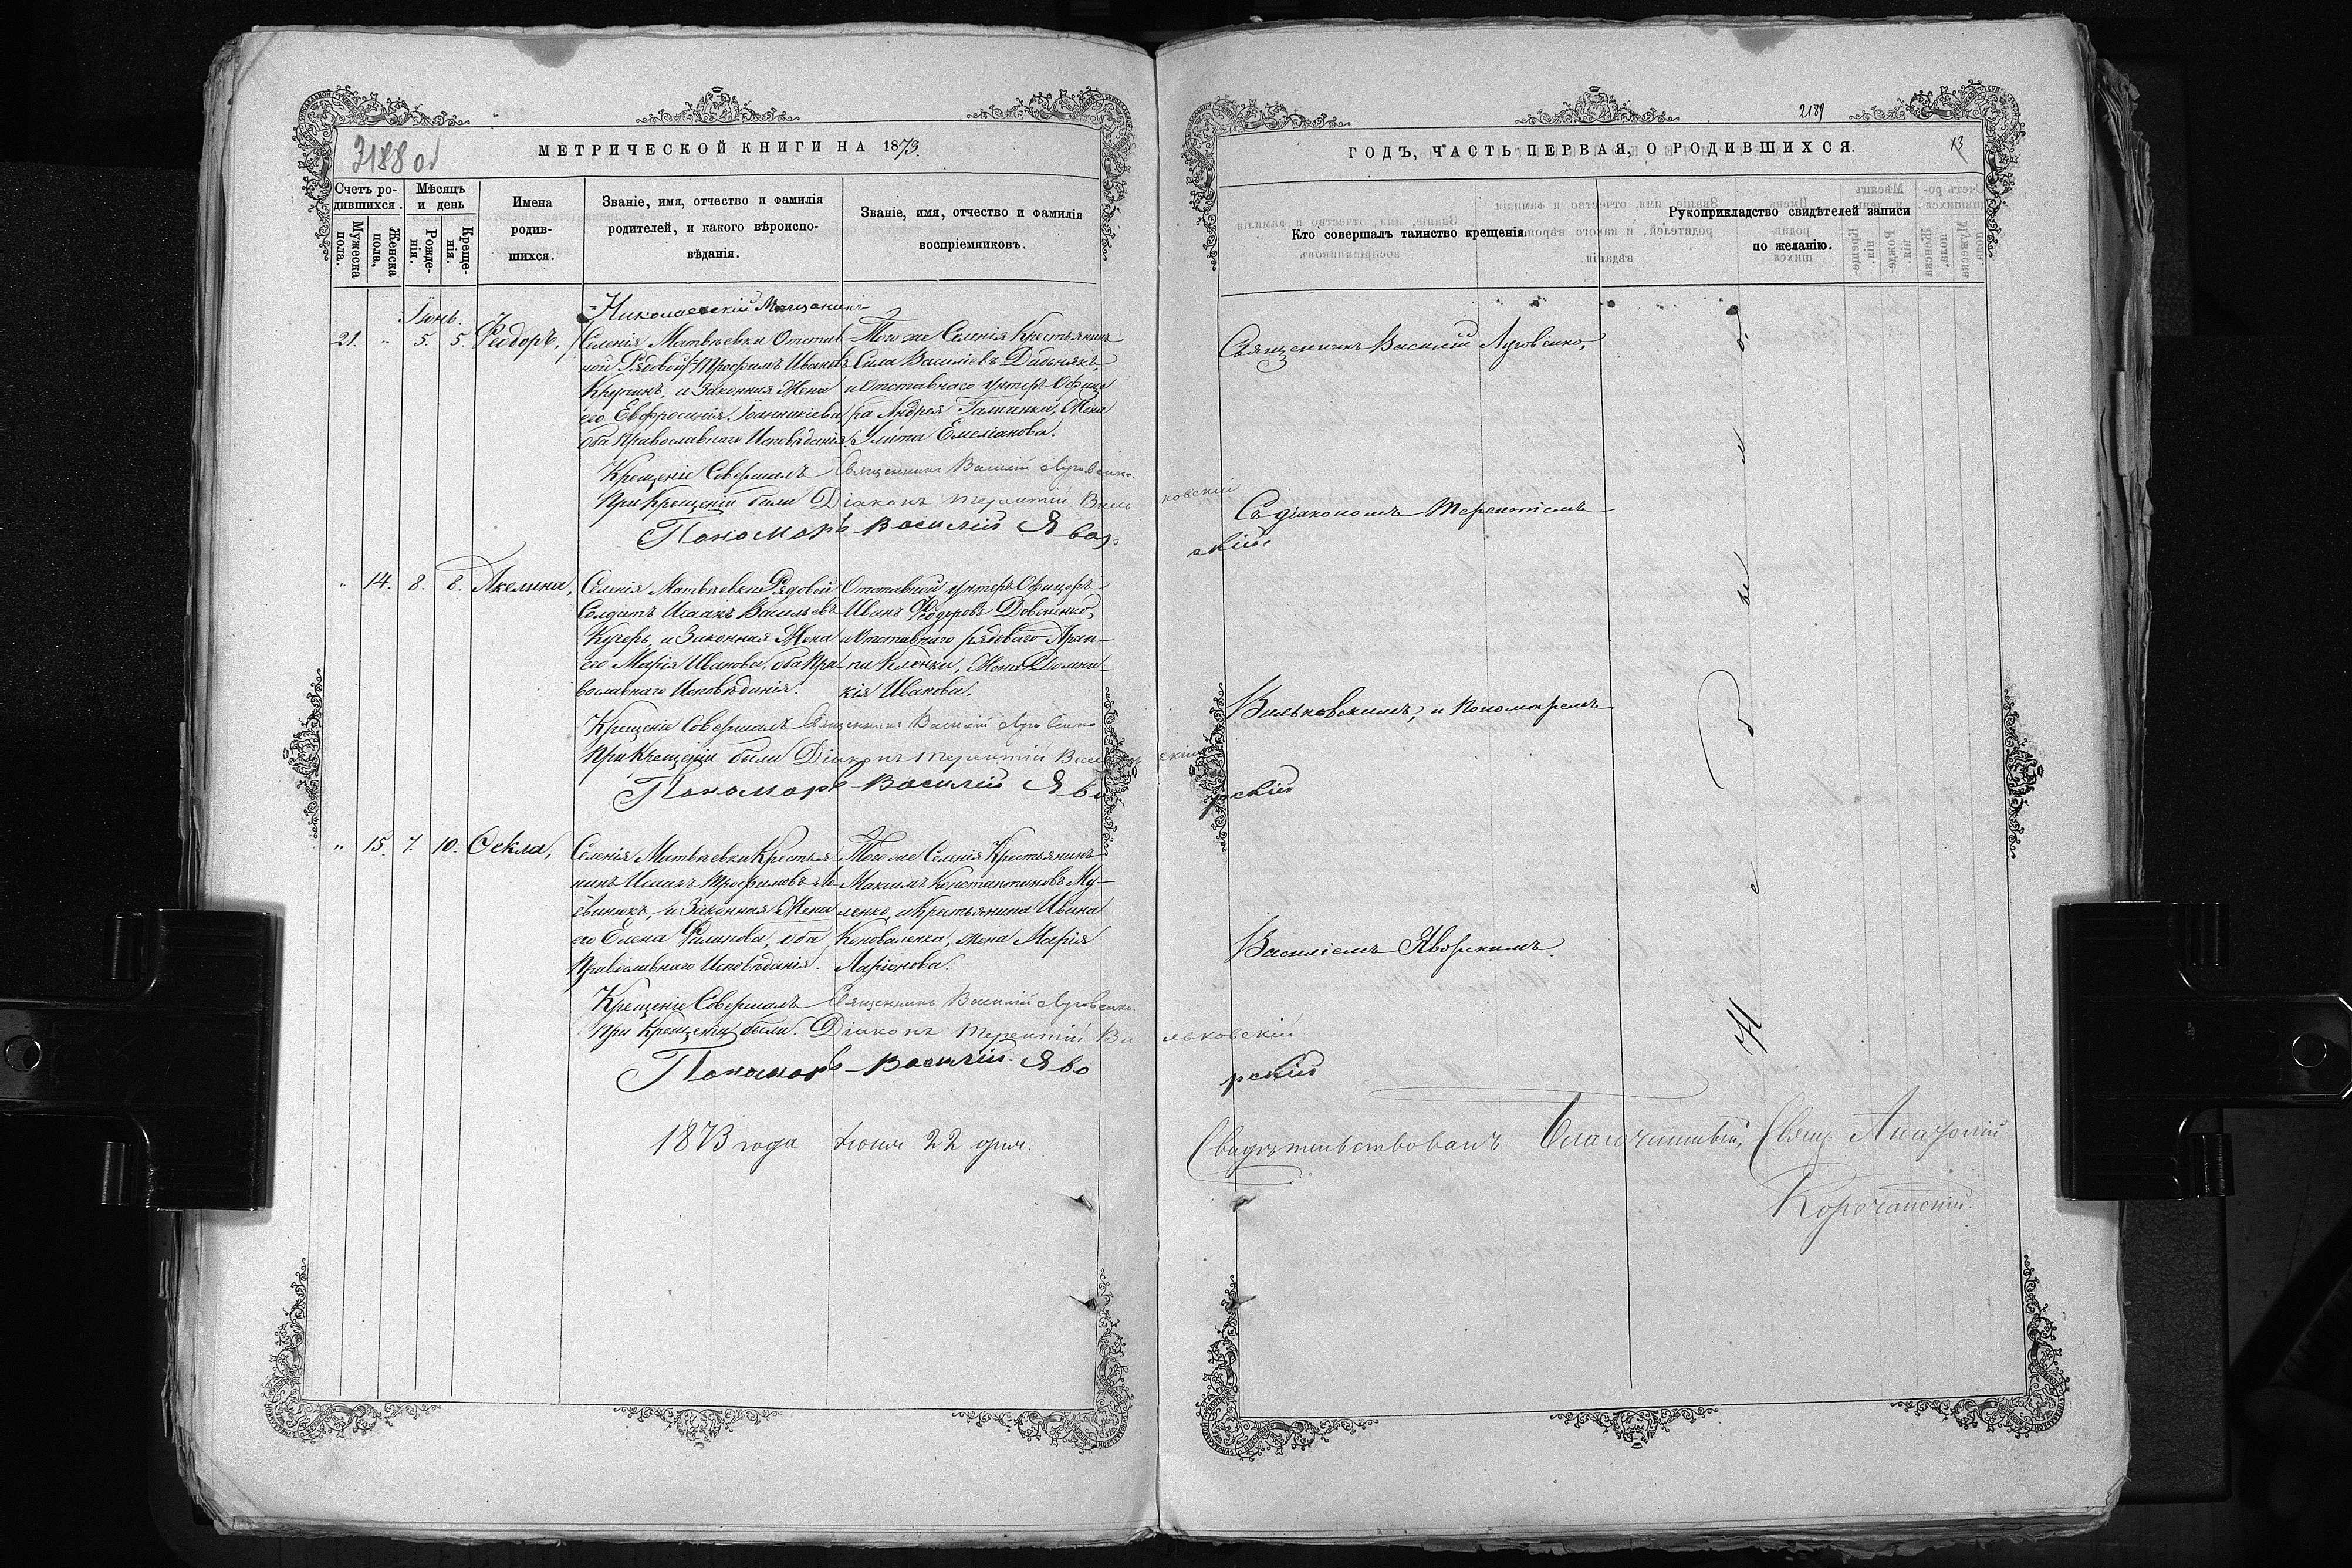 2188 об
МЕТРИЧЕСКОЙ КНИГИ НА 1873.
Счетъ родившихся.
Мужеска пола.
Женска пола.
Мѣсяцъ и день
Рожденія.
Крещенія.
Имена родившихся.
Званіе, имя, отчество и фамилія родителей, и какого вѣроисповѣданія.
Званіе, имя, отчество и фамилія воспріемниковъ.
Іюнь
Николаевскій Мѣщанинъ
21. " 5. 5. Ѳеодоръ,
Селенія Матвѣевки Отстав
ной Рядовой Трофимъ Ивановъ
и Законная Жена
его Евфросинія Іоанникіева,
оба Православнаго Исповѣданія.
Того же Селенія Крестьянинъ
Сила Василіевъ
и Отставнаго Унтеръ Офице
ра Андрея Галиченка, Жена
Улита Емеліанова.
Крещеніе Совершалъ Священникъ Василій Луговенко.
При Крещеніи были Діаконъ Терентій Вильковскій
Пономарь Василій Яворскій
" 14. 8. 8. Акелина,
Селенія Матвѣевки Рядовой
Солдатъ Исаакъ Васильевъ
Кучеръ, и Законная Жена
его Марія Иванова, оба Пра
вославнаго Исповѣданія.
Отставной Унтеръ Офицеръ
Иванъ Ѳеодоровъ Довгненко,
и Отставнаго рядоваго
Кленки, Жена Домни
кія Иванова.
Крещеніе Совершалъ Священникъ Василій Луговенко
При Крещеніи были Діаконъ Терентій Вильковскій
Пономарь Василій Яворскій
" 15. 7. 10. Ѳекла,
Селенія Матвѣевки Крестья
нинъ Исаакъ Трофимовъ
и Законная Жена
его Елена Филипова, оба
Православнаго Исповѣданія.
Того же Селенія Крестьянинъ
Максимъ Константиновъ Му-
ленко, и Крестьянина Ивана
Коноваленка, жена Марія
Ларіонова.
Крещеніе Совершалъ Священникъ Василій Луговенко.
При Крещеніи были. Діаконъ Терентій Вильковскій
Пономарь Василій Яворскій
1873 года Іюня 22 дня.
2189
13
ГОДЪ, ЧАСТЬ ПЕРВАЯ, О РОДИВШИХСЯ.
Кто совершалъ таинство крещенія
Рукоприкладство свидѣтелей записи по желанію.
Священникъ Василій Луговенко,
Съ діакономъ Терентіемъ
Вильковскимъ, и Пономаремъ
Василіемъ Яворскимъ.
Свидѣтельствовалъ Благочинный, Свящ. Анатолій
Корочанскій.